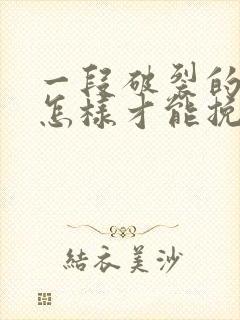 一段破裂的
怎樣才能挽
結衣美沙